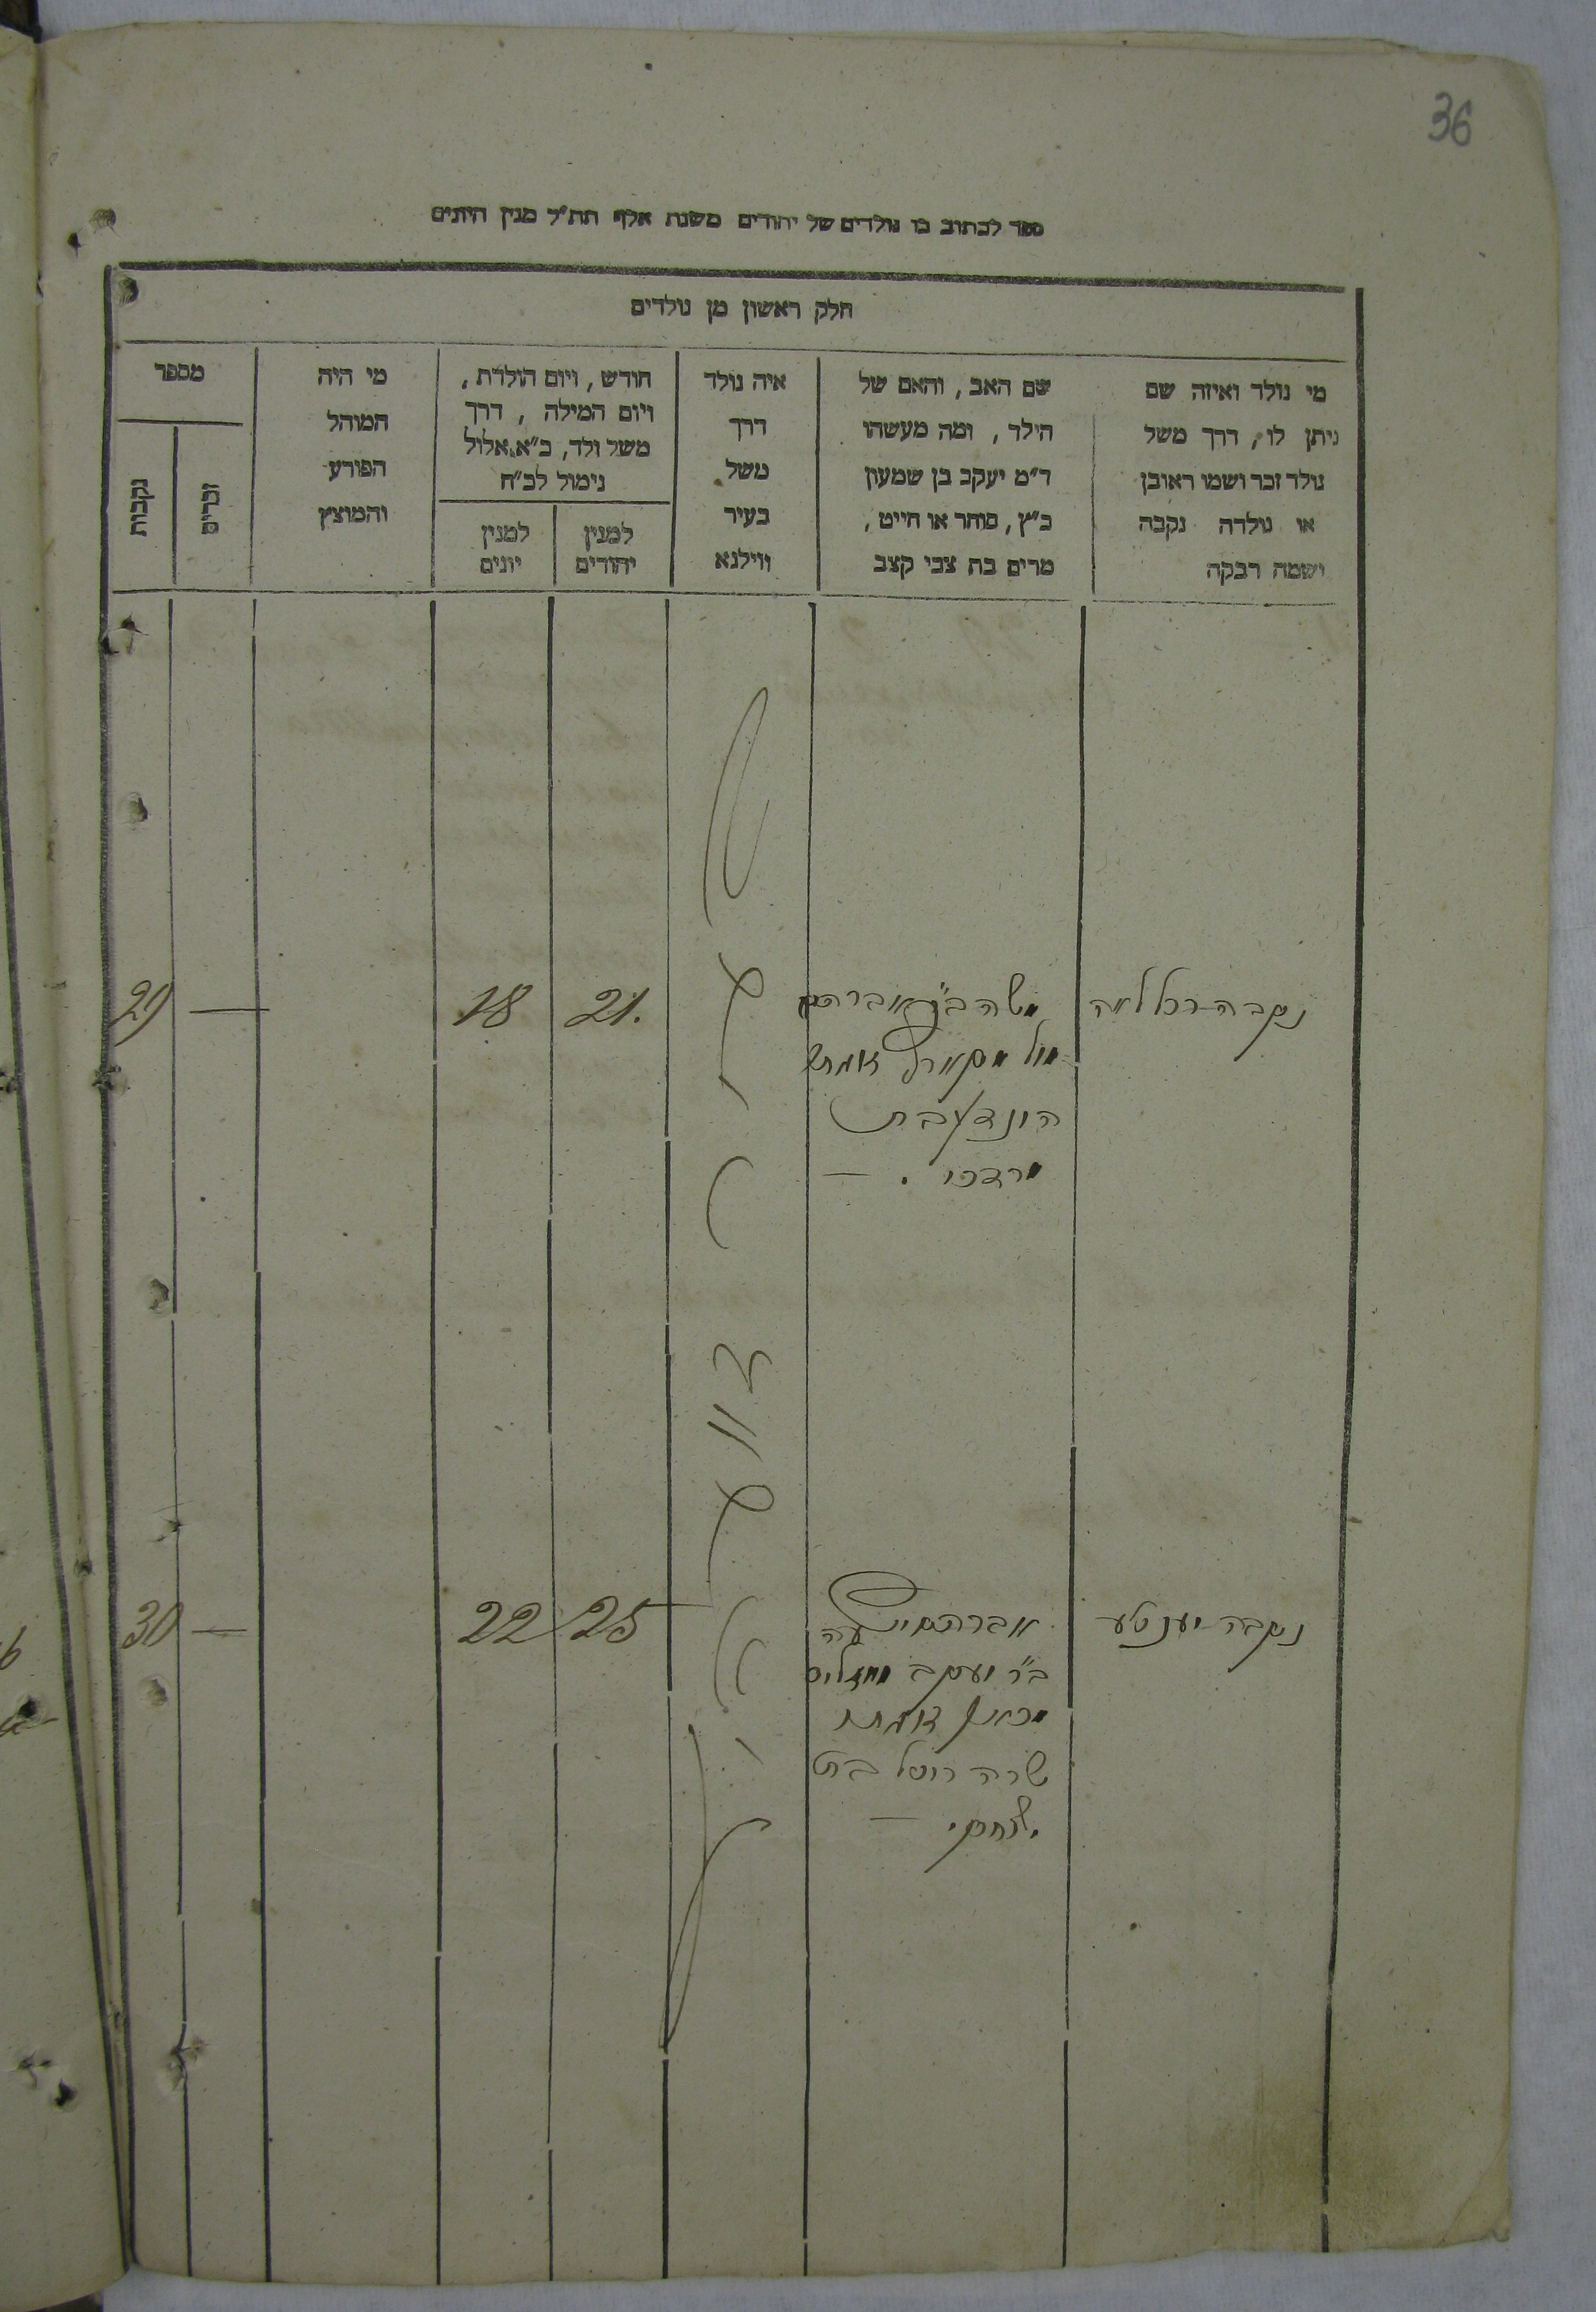 36
ספר לכתוב בו נולדים של יהודים משנת אלף תת״ל מנין היונים
חלק ראשון מן נולדים
מי נולד ואיזה שם
ניתן לו, דרך משל
נולד זכר ושמו ראובן
או נולדה נקבה
ושמה רבקה
שם האב, והאם של
הילד, ומה מעשהו
ד״מ יעקב בן שמעון
כ״ץ, סוחר או חייט,
מרים בת צבי קצב
איה נולד
דרך
משל
בעיר
ווילנא
חודש, ויום הולדת,
ויום המילה, דרך
משל ולד, כ״א אלול
נימול לכ״ח
למנין
יהודים
למנין
יונים
מי היה
המוהל
הפורע
והמוצץ
מספר
זכרים
נקבות
נקבה רכל לאה
משה ב״ר אברהם
הינדע בת
מרדכי . —
21.
18
—
29
נקבה יענטע
אברהם
ב״ר יעקב
שרה רחל בת
יצחק. —
25
22
—
30